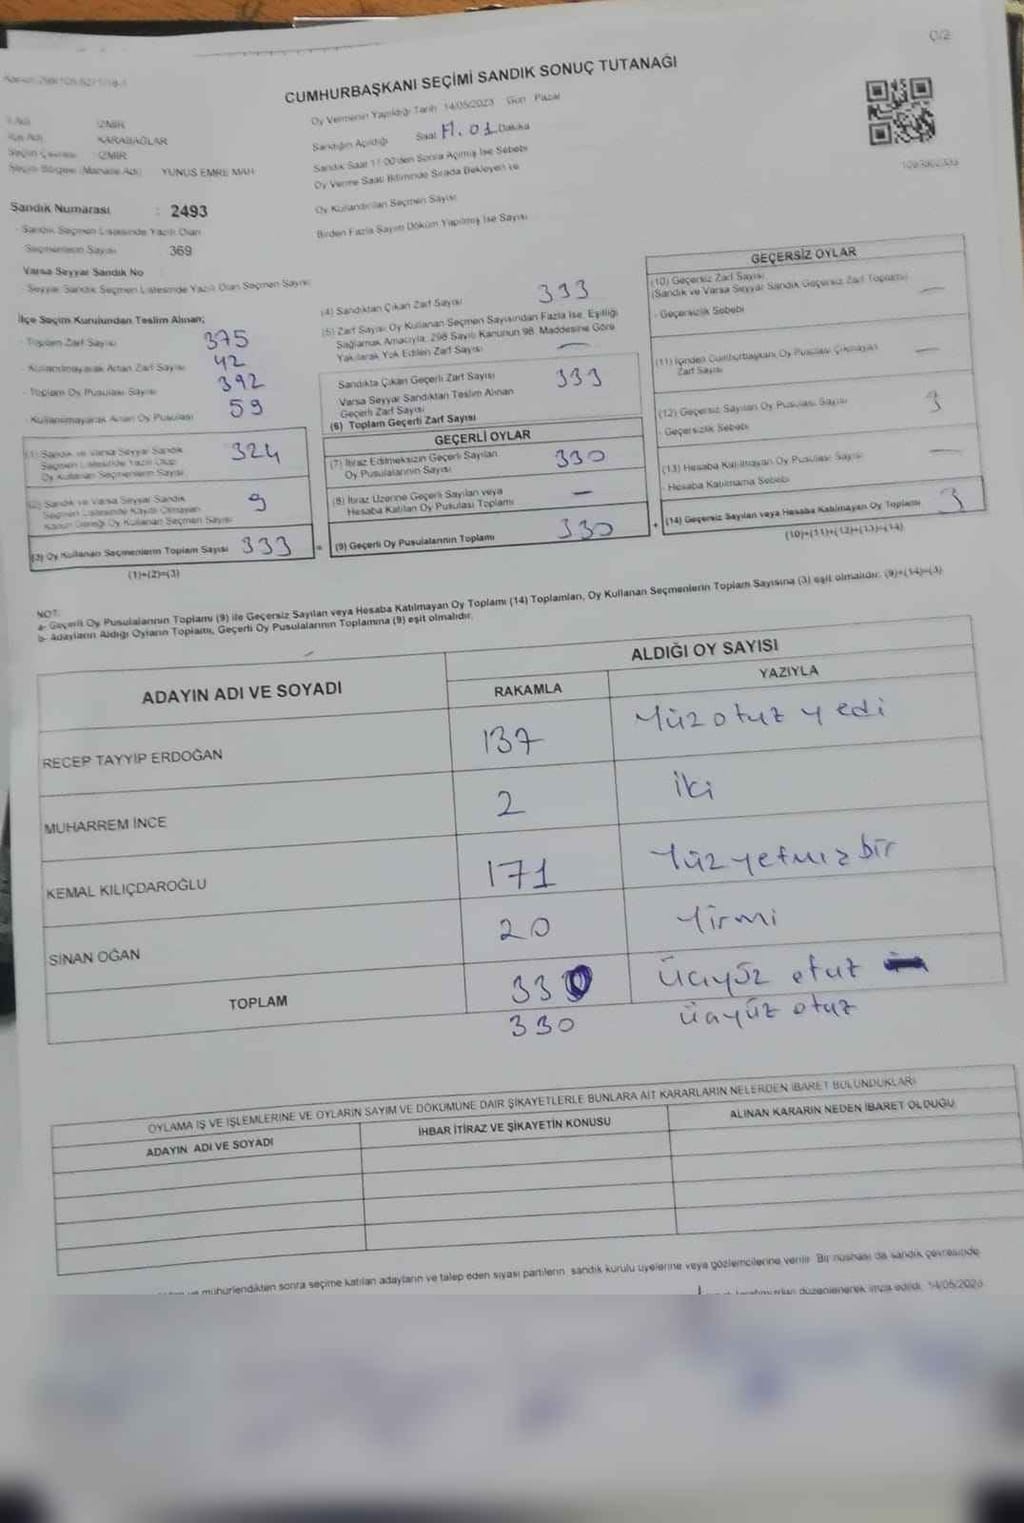 Ç/2
CUMHURBAŞKANI SEÇİMİ SANDIK SONUÇ TUTANAĞI
İZMİR
KARABAĞLAR
İZMİR
Seçim Bölgesi (Mahalle Adı) YUNUS EMRE MAH
Sandık Numarası : 2493
Sandık Seçmen Listesinde Yazılı Olan
Seçmenlerin Sayısı 369
Varsa Seyyar Sandık No
Seyyar Sandık Seçmen Listesinde Yazılı Olan Seçmen Sayısı
Oy Vermenin Yapıldığı Tarih 14/05/2023 Gün Pazar
Sandığın Açıldığı Saat 17.01 Dakika
Sandık Saat 17:00'den Sonra Açılmış İse Sebebi
Oy Verme Saati Bitiminde Sırada Bekleyen ve
Oy Kullandırılan Seçmen Sayısı
Birden Fazla Sayım Döküm Yapılmış İse Sayısı
İlçe Seçim Kurulundan Teslim Alınan;
Toplam Zarf Sayısı 375
Kullanılmayarak Artan Zarf Sayısı 42
Toplam Oy Pusulası Sayısı 392
Kullanılmayarak Artan Oy Pusulası 59
(1) Sandık ve Varsa Seyyar Sandık
Seçmen Listesinde Yazılı Olup
Oy Kullanan Seçmenlerin Sayısı 324
(2) Sandık ve Varsa Seyyar Sandık
Seçmen Listesinde Kayıtlı Olmayan
Kanun Gereği Oy Kullanan Seçmen Sayısı 9
(3) Oy Kullanan Seçmenlerin Toplam Sayısı 333
(1)+(2)=(3)
(4) Sandıktan Çıkan Zarf Sayısı 333
(5) Zarf Sayısı Oy Kullanan Seçmen Sayısından Fazla İse, Eşitliği
Sağlamak Amacıyla, 298 Sayılı Kanunun 98. Maddesine Göre
Yakılarak Yok Edilen Zarf Sayısı —
Sandıkta Çıkan Geçerli Zarf Sayısı 333
Varsa Seyyar Sandıktan Teslim Alınan
Geçerli Zarf Sayısı
(6) Toplam Geçerli Zarf Sayısı
GEÇERLİ OYLAR
(7) İtiraz Edilmeksizin Geçerli Sayılan
Oy Pusulalarının Sayısı 330
(8) İtiraz Üzerine Geçerli Sayılan veya
Hesaba Katılan Oy Pusulası Toplamı —
= (9) Geçerli Oy Pusulalarının Toplamı 330
GEÇERSİZ OYLAR
(10) Geçersiz Zarf Sayısı
(Sandık ve Varsa Seyyar Sandık Geçersiz Zarf Toplamı) —
Geçersizlik Sebebi
(11) İçinden Cumhurbaşkanı Oy Pusulası Çıkmayan
Zarf Sayısı —
(12) Geçersiz Sayılan Oy Pusulası Sayısı 3
Geçersizlik Sebebi
(13) Hesaba Katılmayan Oy Pusulası Sayısı —
Hesaba Katılmama Sebebi
+ (14) Geçersiz Sayılan veya Hesaba Katılmayan Oy Toplamı 3
(10)+(11)+(12)+(13)=(14)
NOT:
a- Geçerli Oy Pusulalarının Toplamı (9) ile Geçersiz Sayılan veya Hesaba Katılmayan Oy Toplamı (14) Toplamları, Oy Kullanan Seçmenlerin Toplam Sayısına (3) eşit olmalıdır. (9)+(14)=(3)
b- Adayların Aldığı Oyların Toplamı, Geçerli Oy Pusulalarının Toplamına (9) eşit olmalıdır.
ADAYIN ADI VE SOYADI
ALDIĞI OY SAYISI
RAKAMLA YAZIYLA
RECEP TAYYİP ERDOĞAN 137 Yüzotuz yedi
MUHARREM İNCE 2 iki
KEMAL KILIÇDAROĞLU 171 Yüzyetmiş bir
SİNAN OĞAN 20 Yirmi
TOPLAM 330 üçyüz otuz
330 üçyüz otuz
OYLAMA İŞ VE İŞLEMLERİNE VE OYLARIN SAYIM VE DÖKÜMÜNE DAİR ŞİKAYETLERLE BUNLARA AİT KARARLARIN NELERDEN İBARET BULUNDUKLARI
ADAYIN ADI VE SOYADI İHBAR İTİRAZ VE ŞİKAYETİN KONUSU ALINAN KARARIN NEDEN İBARET OLDUĞU
mühürlendikten sonra seçime katılan adayların ve talep eden siyasi partilerin sandık kurulu üyelerine veya gözlemcilerine verilir. Bir nüshası da sandık çevresinde
düzenlenerek imza edildi. 14/05/2023